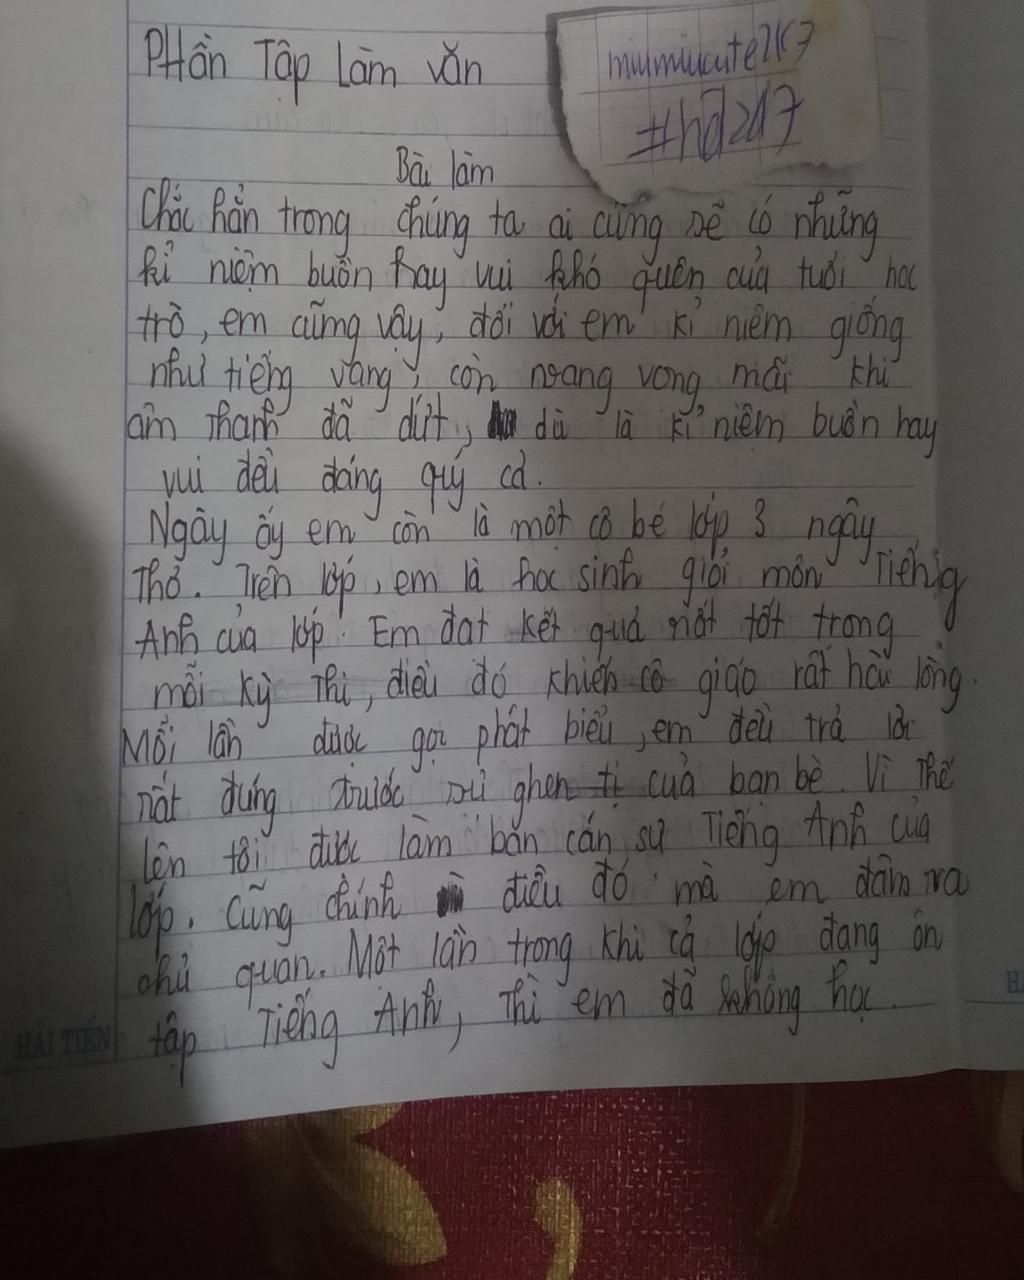 Phần Tập Làm Văn
miumiucute2K7
#hđ247
Bài làm
Chắc hẳn trong chúng ta ai cũng sẽ có những
kỉ niệm buồn hay vui khó quên của tuổi học
trò, em cũng vậy, đối với em kỉ niệm giống
như tiếng vang, còn ngang vọng mãi khi
âm thanh đã dứt, dù là kỉ niệm buồn hay
vui đều đáng quý cả.
Ngày ấy em còn là một cô bé lớp 3 ngây
thơ. Trên lớp, em là học sinh giỏi môn Tiếng
Anh của lớp. Em đạt kết quả rất tốt trong
mỗi kỳ thi, điều đó khiến cô giáo rất hài lòng.
Mỗi lần được gọi phát biểu, em đều trả lời
rất đúng trước sự ghen tị của bạn bè. Vì thế
lên tôi được làm bạn cán sự Tiếng Anh của
lớp. Cũng chính điều đó mà em đâm ra
chủ quan. Một lần trong khi cả lớp đang ôn
tập Tiếng Anh, thì em đã không học.
HẢI TIẾN